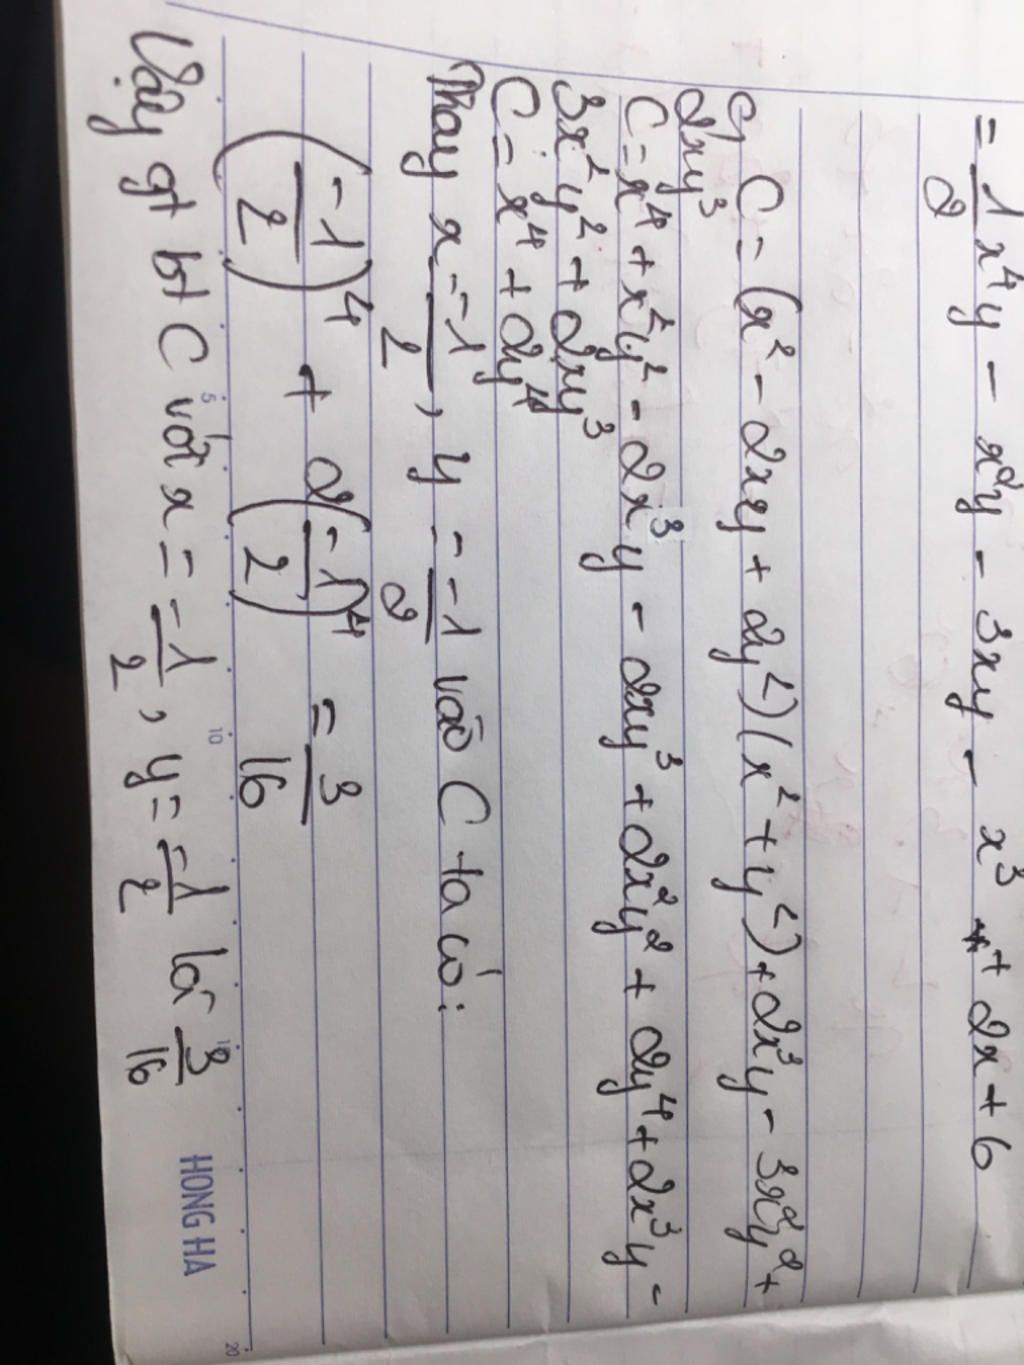 = \frac{1}{2}x⁴y - x²y - 3xy - x³ + 2x + 6
c, C = (x² - 2xy + 2y²)(x² + y²) + 2x³y - 3x²y² +
2xy³
C = x⁴ + x²y² - 2x³y - 2xy³ + 2x²y² + 2y⁴ + 2x³y -
3x²y² + 2xy³
C = x⁴ + 2y⁴
Thay x = \frac{-1}{2}, y = \frac{-1}{2} vào C ta có:
(\frac{-1}{2})⁴ + 2(\frac{-1}{2})⁴ = \frac{3}{16}
Vậy gt bt C với x = \frac{-1}{2}, y = \frac{-1}{2} là \frac{3}{16}
5 10 15 20
HONG HA